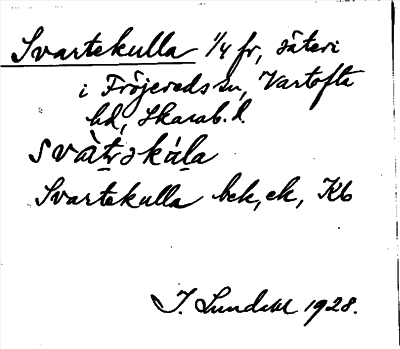 Svartekulla 1/4 fr, säteri
i Fröjereds sn, Vartofta
hd, Skarab. l.
svàt̠əkúla̠
Svartekulla bek, ek, Kb
I. Lundahl 1928.